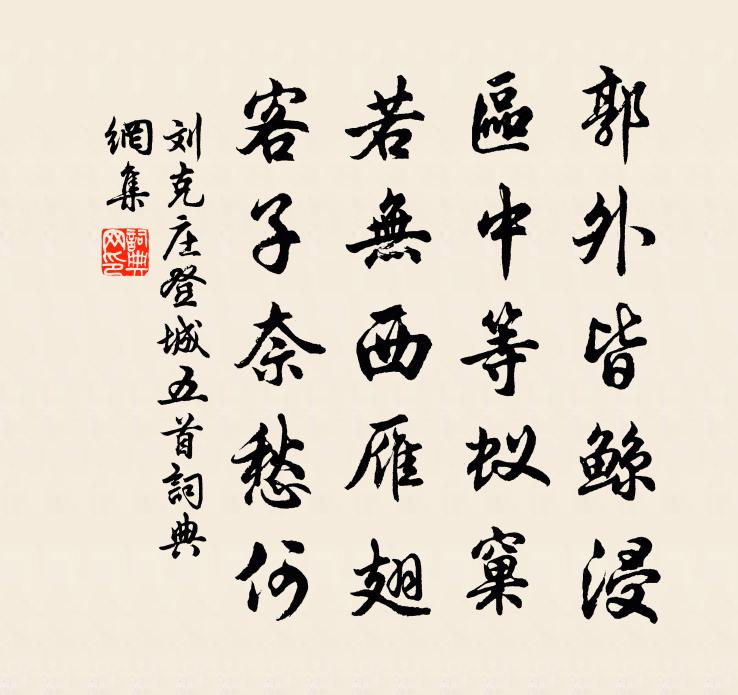 郭外皆鲸浸
區中等蚁窠
若無西雁翅
客子奈愁何
刘克庄登城五首詞典
網集
詞典
网印